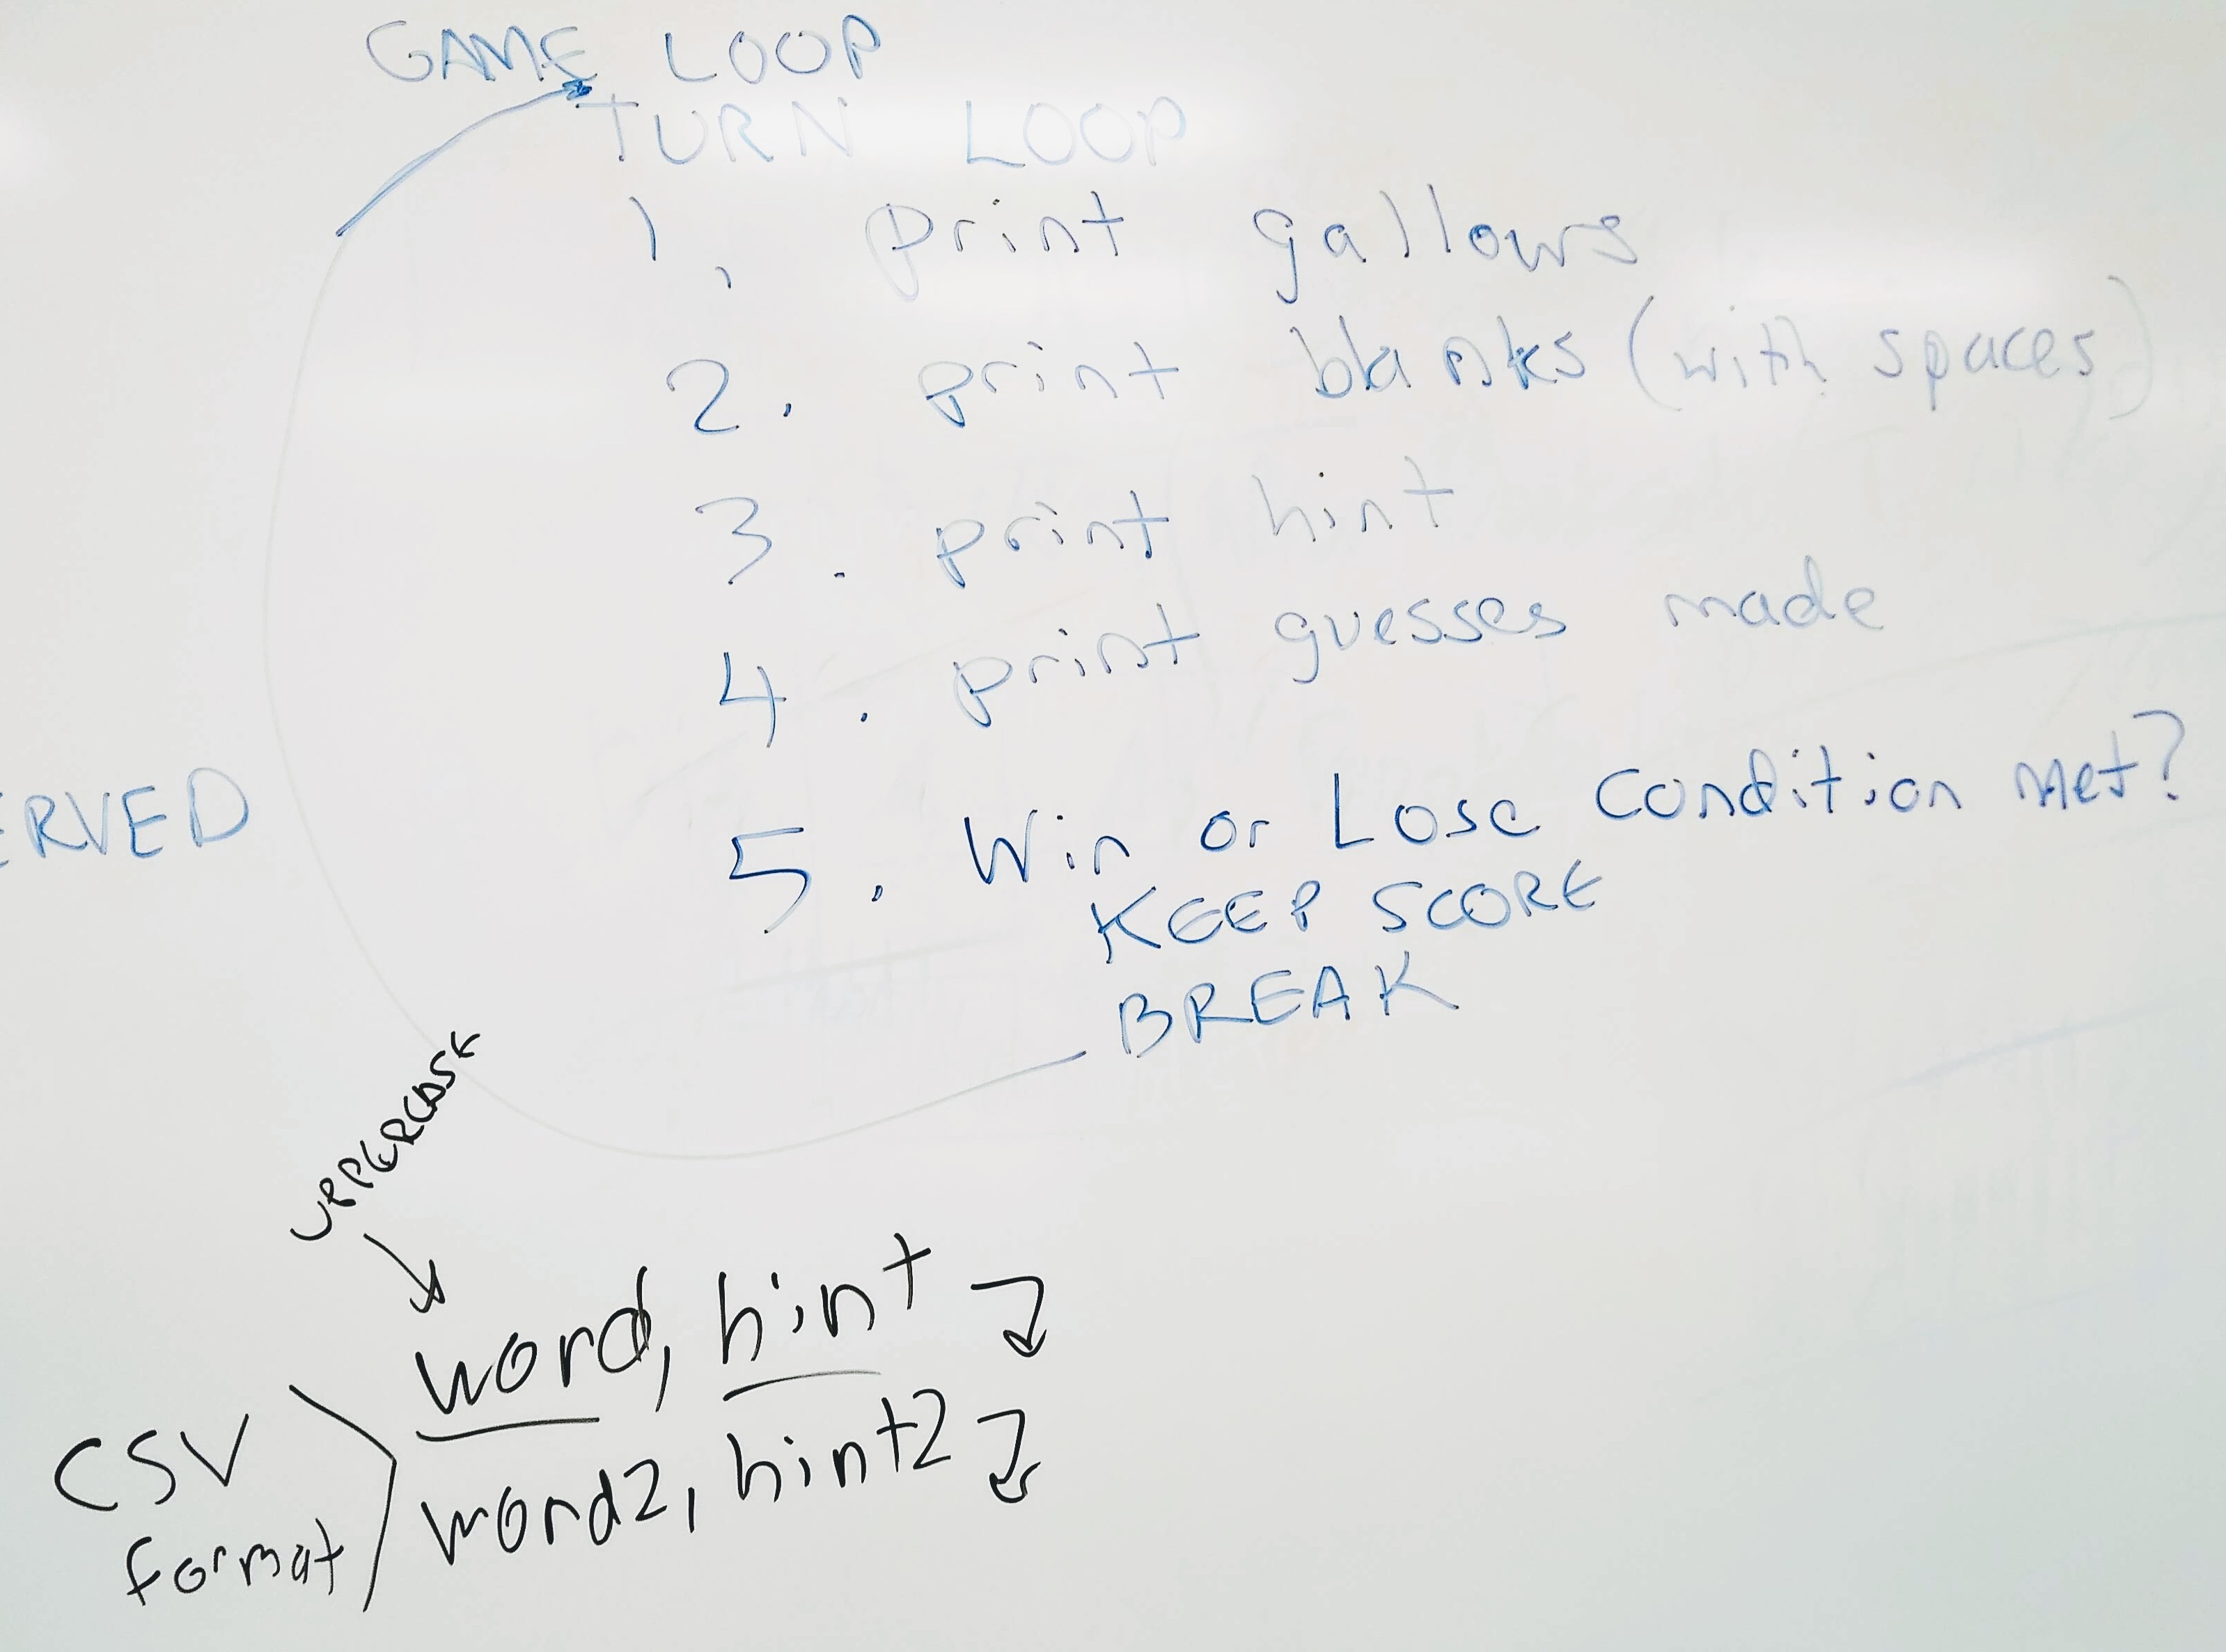 GAME LOOP
TURN LOOP
1. print gallows
2. print blanks (with spaces)
3. print hint
4. print guesses made
5. Win or Lose Condition Met?
KEEP SCORE
BREAK
ERVED
UPPERCASE
word, hint
word2, hint2
CSV
format